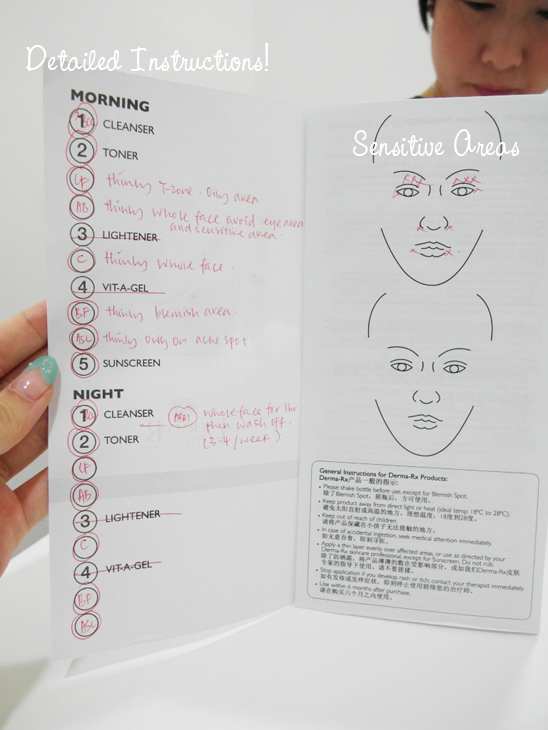 Detailed Instructions!
MORNING
1 CLEANSER
2 TONER
LF thinly T-zone. Oily area
AB thinly whole face avoid eye area and sensitive area.
3 LIGHTENER
C thinly whole face.
4 VIT-A-GEL
BF thinly blemish area.
ABL thinly only on acne spot.
5 SUNSCREEN
NIGHT
1 CLEANSER
whole face for 1hr
then wash off.
(3-4/week).
2 TONER
LF
AB
3 LIGHTENER
C
4 VIT-A-GEL
BF
ABL
Sensitive Areas
General Instructions for Derma-Rx Products:
Derma-Rx产品一般的指示:
• Please shake bottle before use, except for Blemish Spot.
除了Blemish Spot，摇瓶后，方可使用。
• Keep product away from direct light or heat (ideal temp :18ºC to 28ºC).
避免太阳直射或高温的地方。理想温度：18度到28度。
• Keep out of reach of children.
请将产品保藏在小孩子无法接触的地方。
• In case of accidental ingestion, seek medical attention immediately.
如无意吞食，即刻寻医。
• Apply a thin layer evenly over affected areas, or use as directed by your
Derma-Rx skincare professional, except for Sunscreen. Do not rub.
除了防晒霜，将产品薄薄的敷在受影响部分，或如我们Derma-Rx皮肤
专家的指示下使用。请不要搓揉。
• Stop application if you develop rash or itch; contact your therapist immediately.
如有发疹或发痒症状，即刻停止使用联络您的治疗师。
• Use within 6 months after purchase.
请在购买六个月之内使用。